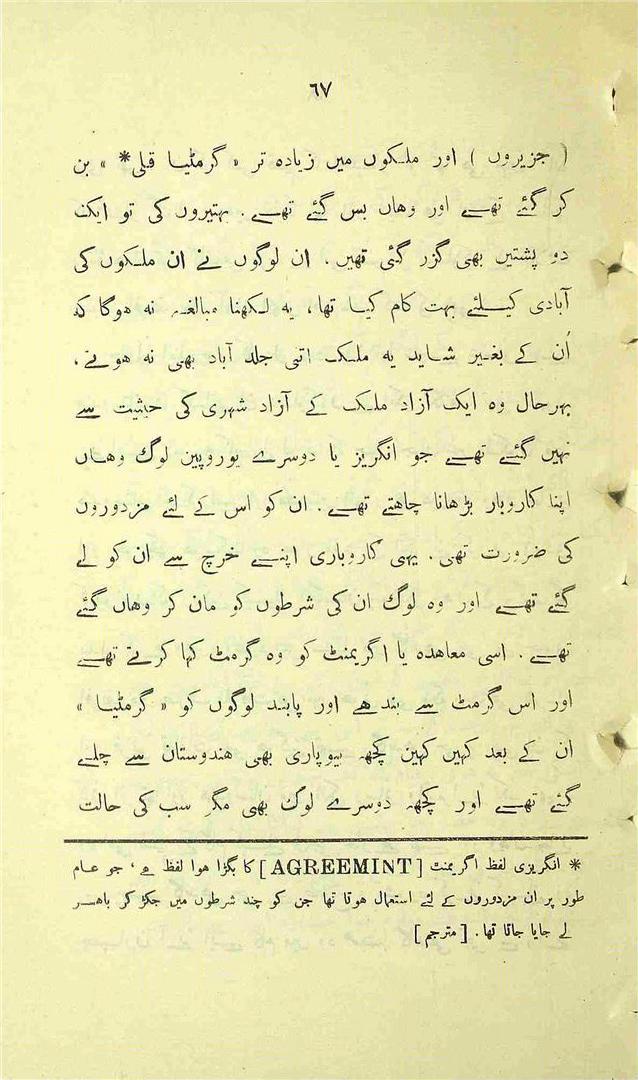 ٦٧
( جزیروں ) اور ملکوں میں زیادہ تر « گرمٹیا قلی* » بن
کر گئے تھے اور وھاں بس گئے تھے. بہتیروں کی تو ایک
دو پشتیں بھی گزر گئی تھیں. ان لوگوں نے ان ملکوں کی
آبادی کیلئے بہت کام کیا تھا، یہ لکھنا مبالغہ نہ ھوگا کہ
اُن کے بغیر شاید یہ ملک اتنی جلد آباد بھی نہ ھوتے،
بہرحال وہ ایک آزاد ملک کے آزاد شہری کی حیثیت سے
نہیں گئے تھے جو انگریز یا دوسرے یوروپین لوگ وھاں
اپنا کاروبار بڑھانا چاھتے تھے. ان کو اس کے لئے مزدوروں
کی ضرورت تھی. یہی کاروباری اپنے خرچ سے ان کو لے
گئے تھے اور وہ لوگ ان کی شرطوں کو مان کر وھاں گئے
تھے. اسی معاھدہ یا اگریمنٹ کو وہ گرمٹ کہا کرتے تھے
اور اس گرمٹ سے بندھے اور پابند لوگوں کو « گرمٹیا »
ان کے بعد کہیں کہین کچھ بیوپاری بھی ھندوستان سے چلے
گئے تھے اور کچھ دوسرے لوگ بھی مگر سب کی حالت
* انگریزی لفظ اگریمنٹ [AGREEMINT] کا بگڑا ھوا لفظ ھے، جو عام
طور پر ان مزدوروں کے لئے استعمال ھوتا تھا جن کو چند شرطوں میں جکڑ کر باھر
لے جایا جاتا تھا. [مترجم]